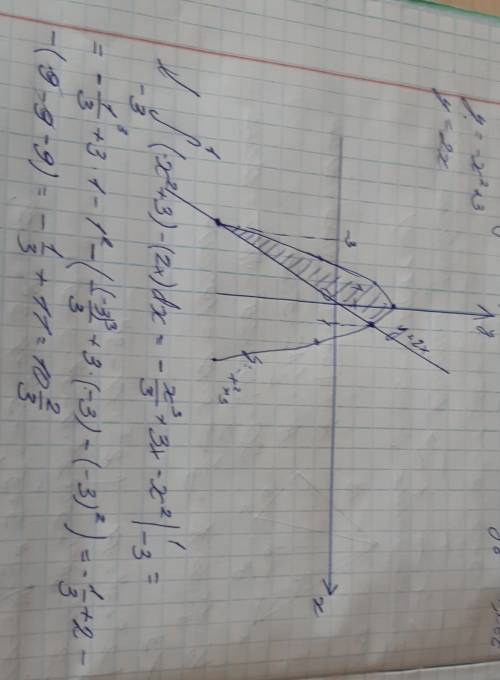 y = -x²+3
y = 2x
y
-3
1
y=2x
y=-x²+3
x
-3∫¹ (-x²+3)-(2x)dx = -x³/3 + 3x - x² |¹-3 =
= -1³/3 + 3·1 - 1² - (-(-3)³/3 + 3·(-3) - (-3)²) = -1/3 + 2 -
-(9-9-9) = -1/3 + 11 = 10 2/3